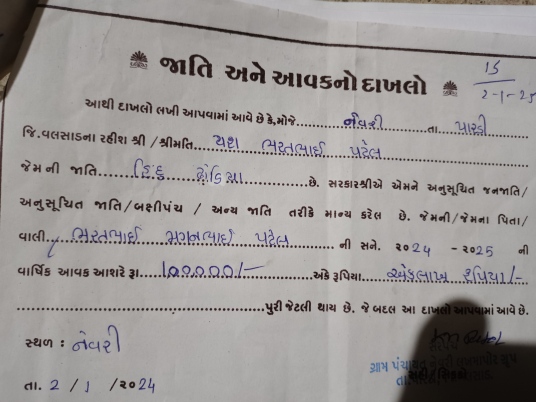 જાતિ અને આવકનો દાખલો
15
2-1-25
આથી દાખલો લખી આપવામાં આવે છે કે, મોજે નેવરી તા પારડી
જિ. વલસાડના રહીશ શ્રી / શ્રીમતિ યશ ભરતભાઈ પટેલ
જેમની જાતિ હિંદુ ધોડિયા છે. સરકારશ્રીએ એમને અનુસૂચિત જનજાતિ/
અનુસૂચિત જાતિ/બક્ષીપંચ / અન્ય જાતિ તરીકે માન્ય કરેલ છે. જેમની/જેમના પિતા/
વાલી ભરતભાઈ મગનભાઈ પટેલ ની સને. ૨૦24 - ૨૦25 ની
વાર્ષિક આવક આશરે રૂા. 100000/- અંકે રૂપિયા એકલાખ રૂપિયા/-
પુરી જેટલી થાય છે. જે બદલ આ દાખલો આપવામાં આવે છે.
સ્થળ : નેવરી
ગ્રામ પંચાયત
તા. 2 / 1 / ૨૦24